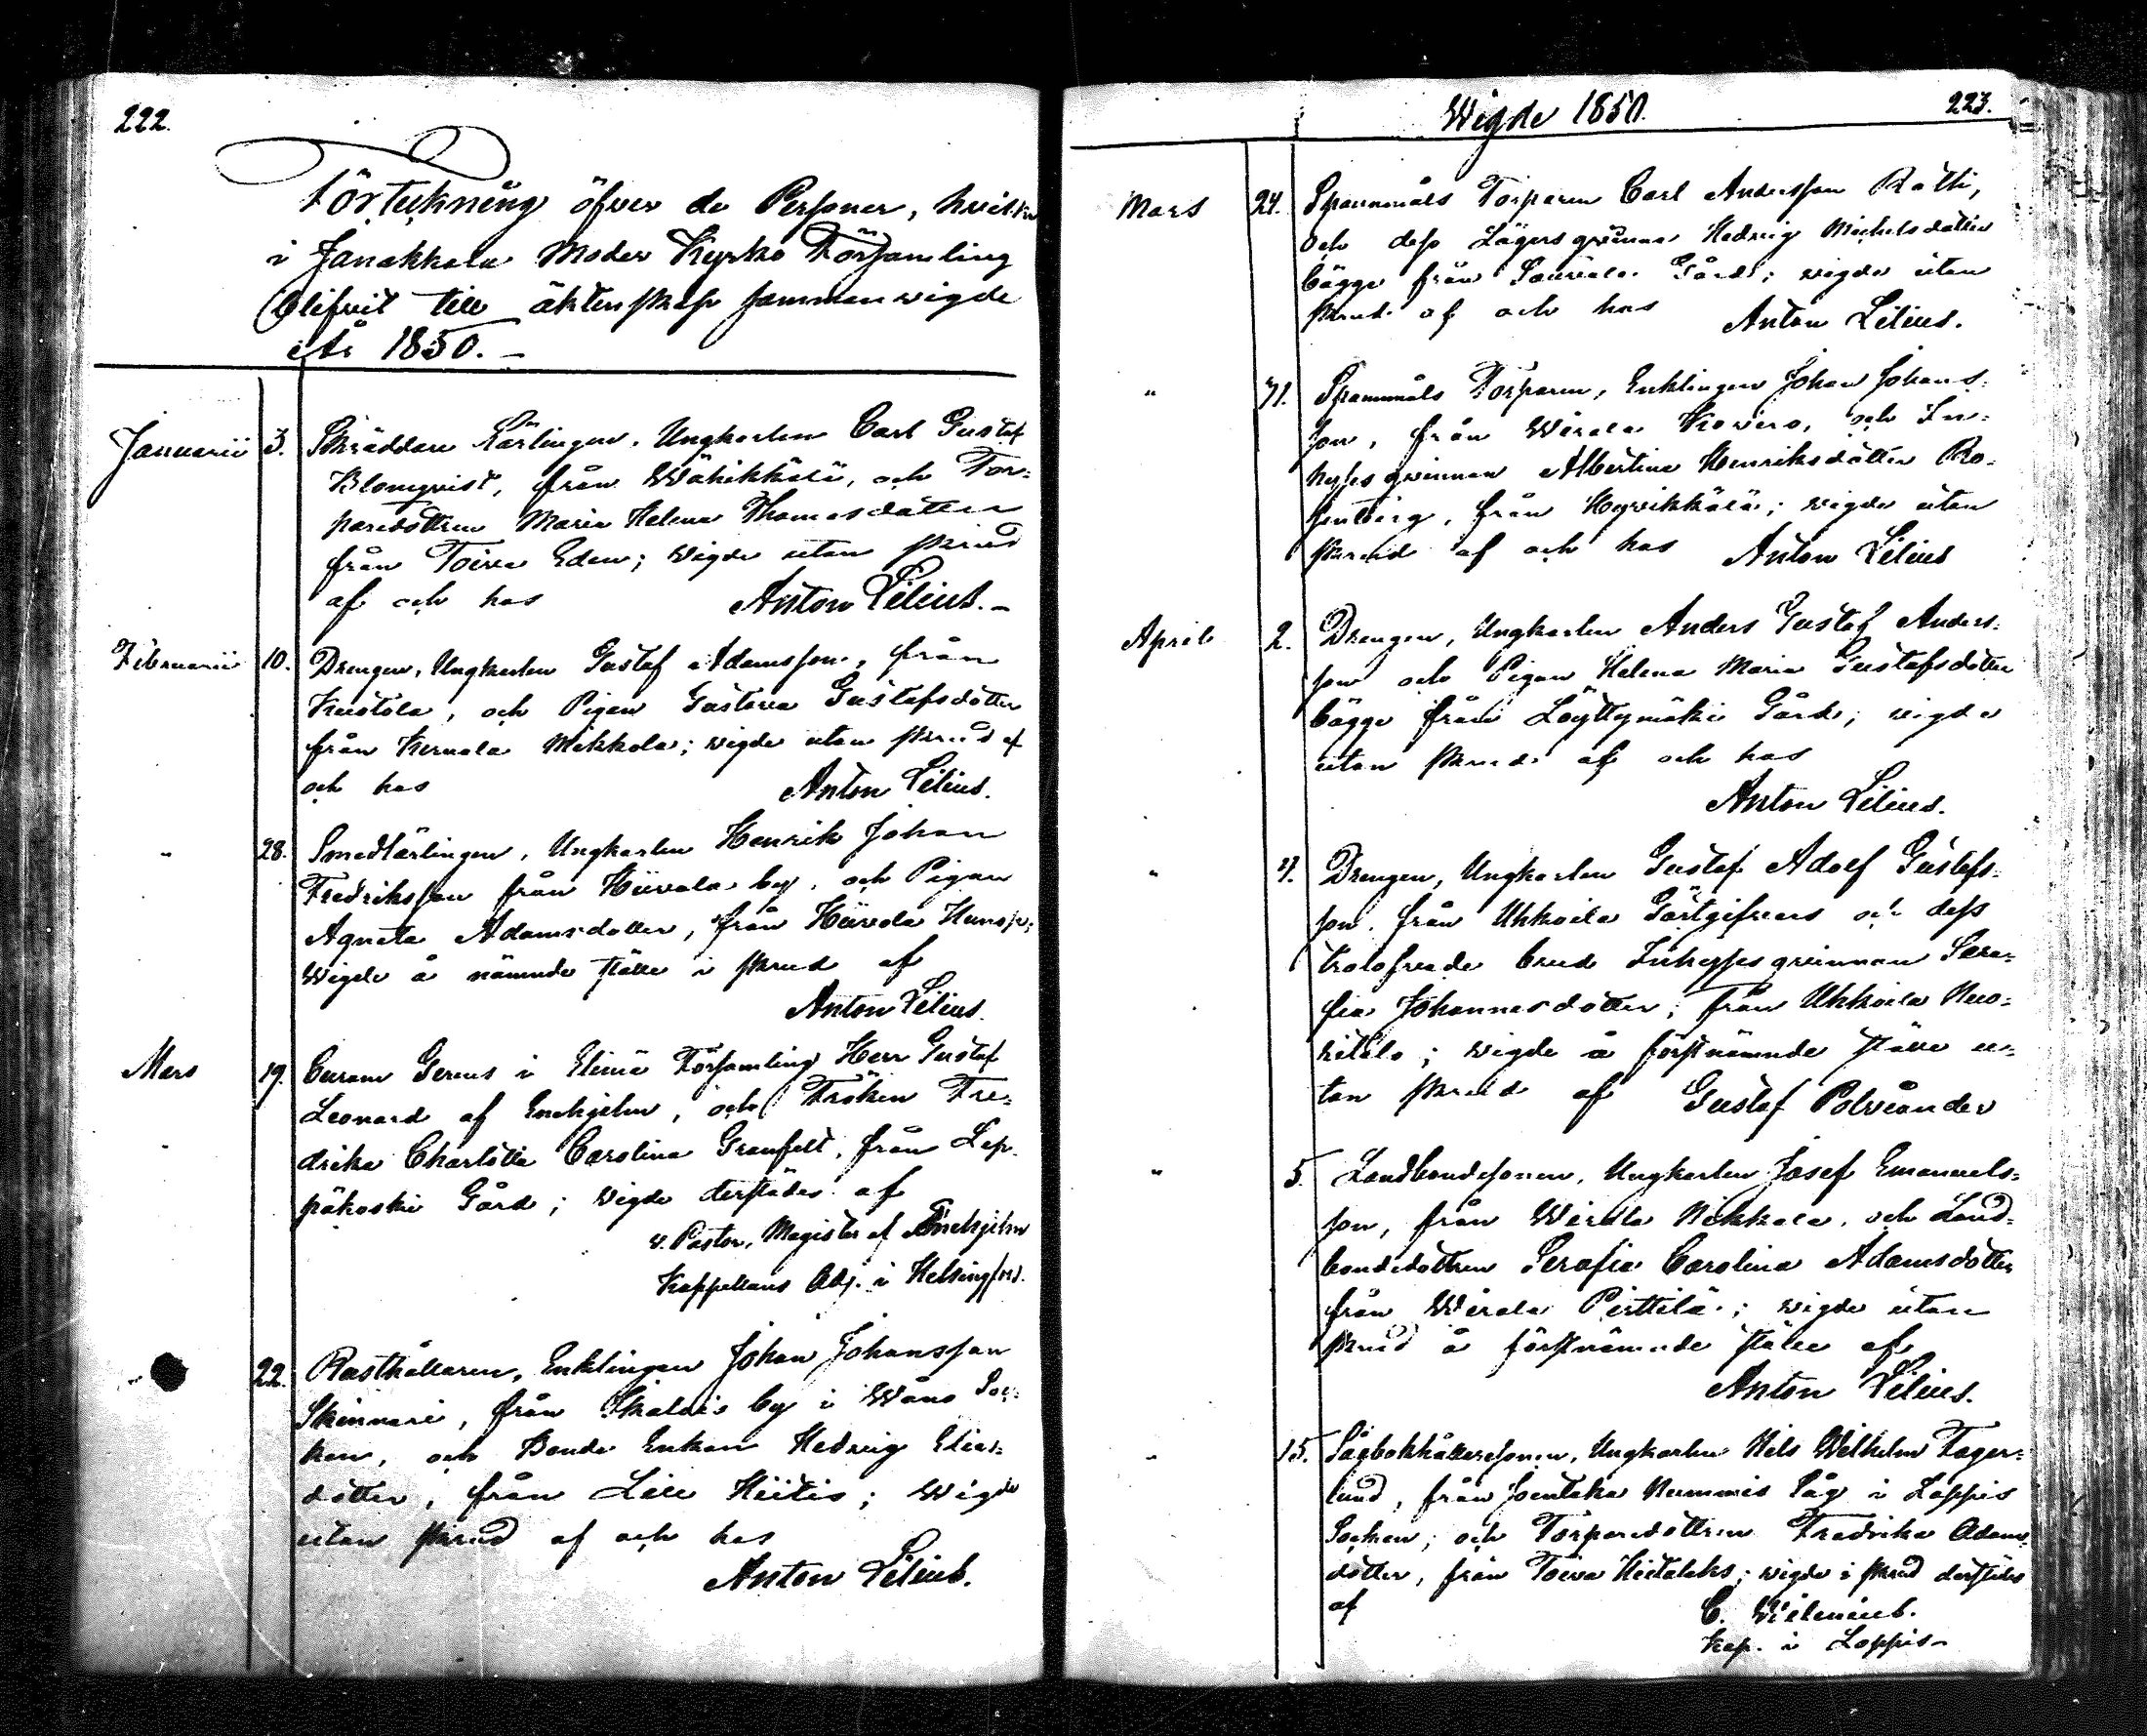 222.
Förteckning öfver de Personer, hvilka
i Janakkala Moder Kyrko Församling
blifvit till äktenskap sammanwigde
År 1850.
Januarii 3. Skräddare Lärlingen, Ungkarlen Carl Gustaf
Blomqvist, från Wähikkälä, och Tor-
paredottren Maria Helena Thomasdotter
från Toiva Eden; wigde utan skrud
af och hos Anton Lilius.
Februarii 10. Drengen, Ungkarlen Gustaf Adamsson, från
Kustola, och Pigan Gustava Gustafsdotter
från Kernala Mikkola; wigde utan skrud af
och hos Anton Lilius.
" 28. Smedlärlingen, Ungkarlen Henrik Johan
Fredriksson från Hiivola by, och Pigan
Agneta Adamsdotter, från Hiivola
wigde å nämnde ställe i skrud af
Anton Lilius.
Mars 19. Curam Gerens i Elimä Församling Herr Gustaf
Leonard af Enehjelm, och Fröken Fre-
drika Charlotta Carolina Granfelt, från Lep-
päkoski Gård; wigde derstädes af
v. Pastor, Magister af Enehjelm
Kappellans Adj. i Helsingfors.
" 22. Rusthållaren, Enklingen Johan Johansson
Skinnari, från by i Wånå Soc-
ken, och Bonde Enkan Hedvig Elias-
dotter, från Lill Hiitis; wigde
utan skrud af och hos
Anton Lilius.
Wigde 1850. 223.
Mars 24. Spannmåls Torparen Carl Andersson Rätti,
och dess Lägersqvinna Hedvig Michelsdotter
bägge från Sauvala Gård; wigde utan
skrud af och hos Anton Lilius.
" 31. Spannmåls Torparen, Enklingen Johan Johans-
son, från Wirala Kowero, och In-
hysesqvinnan Albertina Henriksdotter Ro-
senberg, från Hyvikkälä; wigde utan
skrud af och hos Anton Lilius
April 2. Drengen, Ungkarlen Anders Gustaf Anders-
son och Pigan Helena Maria Gustafsdotter
bägge från Löyttymäki Gård; wigde
utan skrud af och hos
Anton Lilius.
" 4. Drengen, Ungkarlen Gustaf Adolf Gustafs-
son från Uhkoila Gästgifvars och dess
trolofvade brud Inhysesqvinnan Sera-
fia Johannesdotter, från Uhkoila
wigde å förstnämnde ställe u-
tan skrud af Gustaf Polviander
" 5. Landbondesonen, Ungkarlen Josef Emanuels-
son, från Wirala Nikkola, och Land-
bondedottren Serafia Carolina Adamsdotter
från Wirala Pirttilä; wigde utan
skrud å förstnämnde ställe af
Anton Lilius.
" 15. Sågbokhållaresonen, Ungkarlen Nils Wilhelm Fager-
lund, från Joentaka Nummis Såg i Loppis
Socken, och Torparedottren Fredrika Adams-
dotter, från Toiva Hietalaks; wigde i skrud derstädes
af C. Wilenius.
Kap. i Loppis